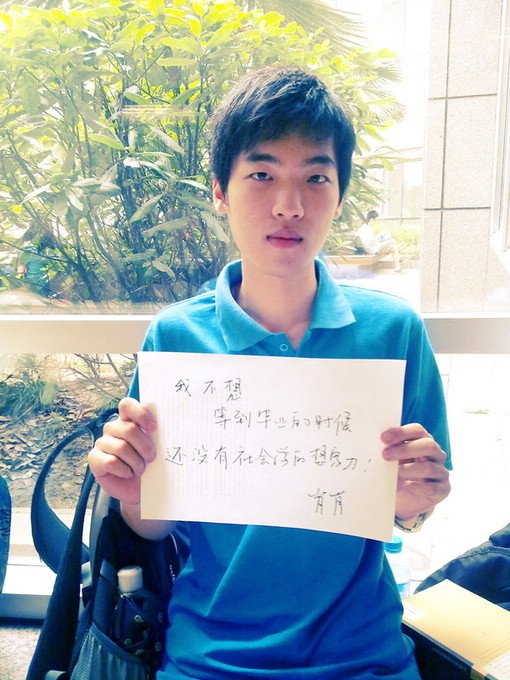 我不想
等到毕业的时候
还没有社会学的想象力！
肖肖